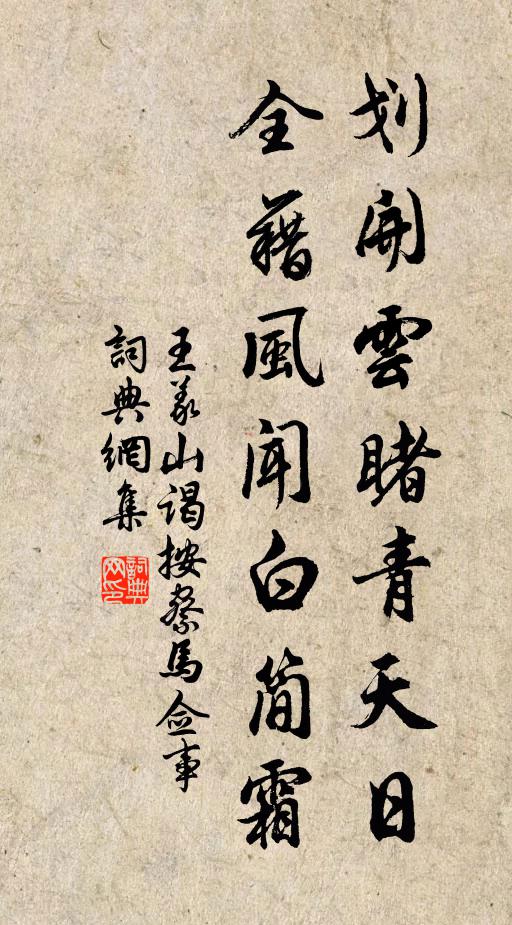 划開雲睹青天日
全藉風聞白簡霜
王義山謁按察馬僉事
詞典網集
詞典網印